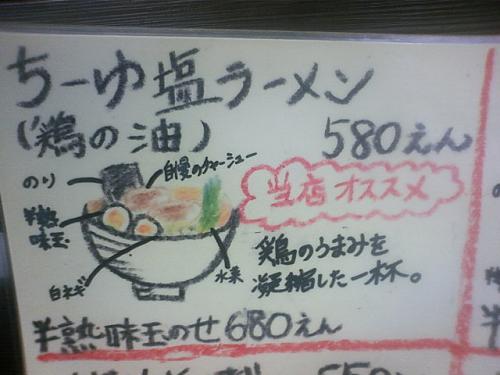 ちーゆ塩ラーメン
(鶏の油)
580えん
のり
自慢のチャーシュー
半熟
味玉
白ネギ
水菜
当店オススメ
鶏のうまみを
凝縮した一杯。
半熟味玉のせ680えん
550